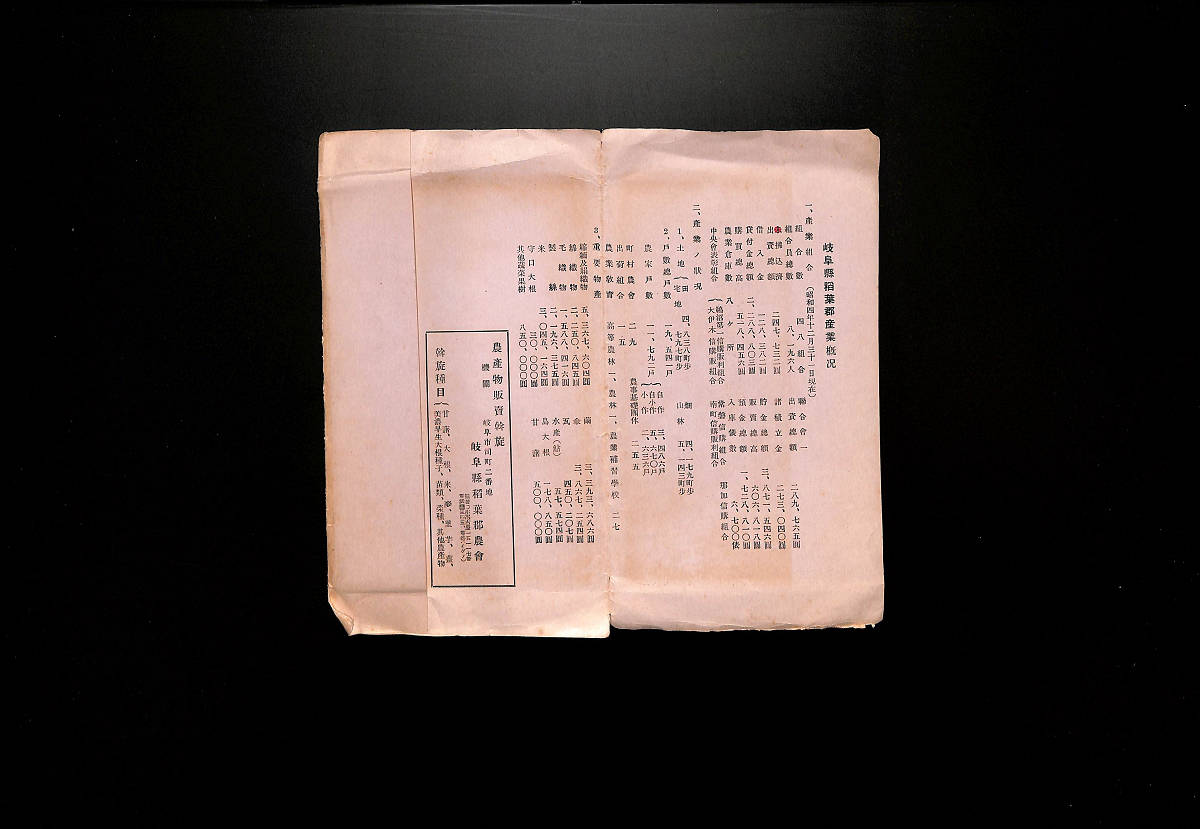 岐阜縣稻葉郡產業槪況
一、產業組合（昭和四年十二月三十一日現在）
組合數 四八組合 聯合會一
組合員總數 八、一九六人 出資總額 二八九、七六五圓
拂込濟出資總額 二四七、七三二圓 諸積立金 二七三、〇四〇圓
借入金 一二八、三八二圓 貯金總額 三、八七一、五四六圓
貸付金總額 二、二八八、八〇三圓 販賣總高 六〇六、八一八圓
購買總高 五二八、四五六圓 預金總額 一、七二八、八一〇圓
農業倉庫數 八ヶ所 入庫俵數 六、七〇〇俵
中央會表彰組合 鵜沼第一信購販利組合 常磐信購組合 那加信購組合
大伊木信購販組合 南町信購販利組合
二、產業ノ狀況
1、土地 田 四、八三八町步 畑 四、一七九町步
宅地 七九七町步 山林 五、一四三町步
2、戶數總戶數 一九、五四一戶
農家戶數 一一、七九二戶 自作 三、四八六戶
自小作 五、六七〇戶
小作 二、六三六戶
町村農會 二九 農事基礎團体 二五五
出荷組合 一五
農業敎育 高等農林一、農林一、農業補習學校 二七
3、重要物產
縮緬及絹織物 五、三六七、六〇四圓 繭 三、三九三、六八六圓
綿織物 二、二五〇、八四五圓 傘 三、八六七、二五四圓
毛織物 一、五八八、四一六圓 瓦 四五〇、二〇七圓
製絲 二、一九六、三七五圓 水產(鮎) 五七、五七四圓
米 三、〇四五、一六四圓 島大根 一七八、八五〇圓
守口大根 三〇、〇〇〇圓 甘藷 五〇〇、〇〇〇圓
其他蔬菜果樹 八五〇、〇〇〇圓
農產物販賣斡旋
機關 岐阜市司町二番地
岐阜縣稻葉郡農會
斡旋種目 甘藷、大根、米、麥、里芋、蘆、
美濃早生大根種子、苗類、菜種、其他農產物